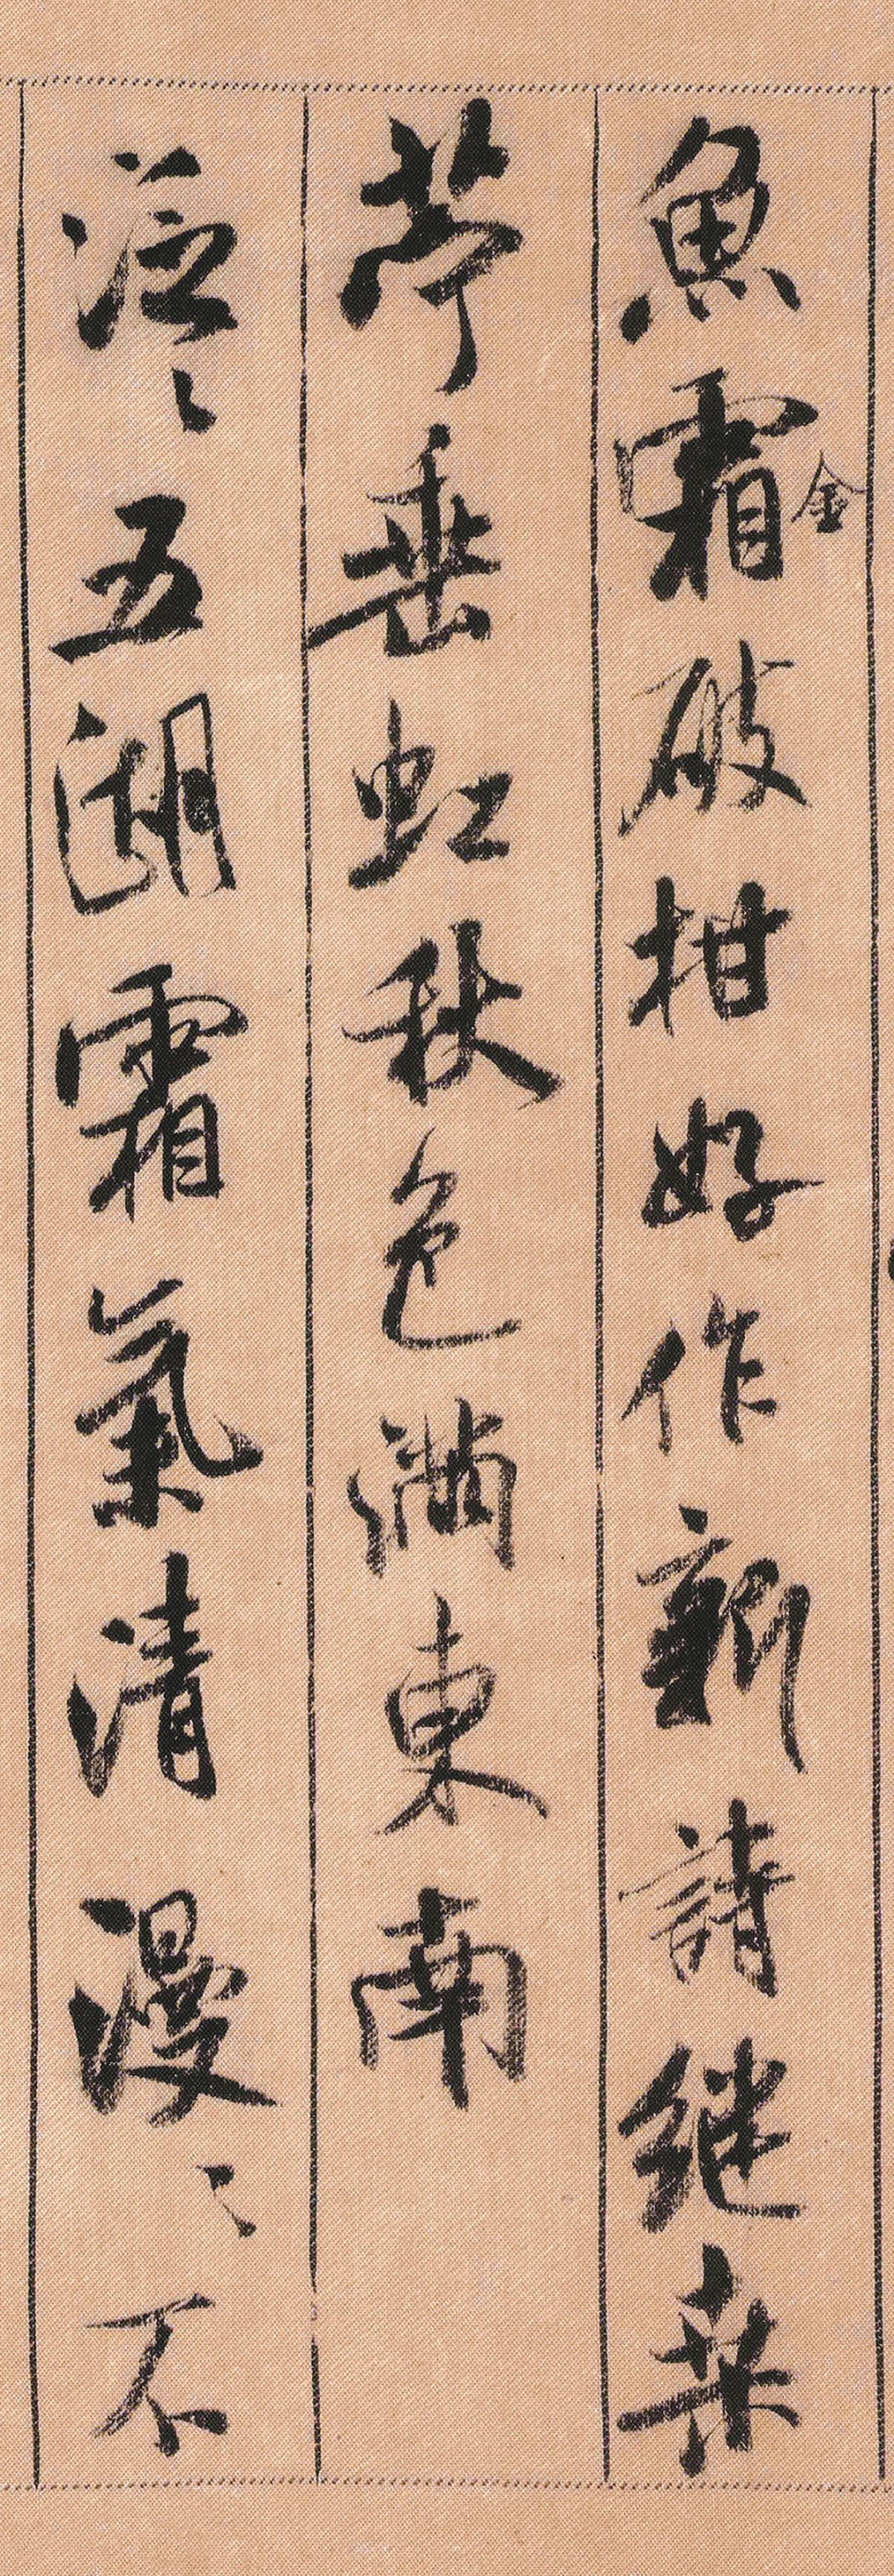 魚霜金破柑好作新詩継桑
苧垂虹秋色滿東南
泛〻五湖霜氣清漫〻不